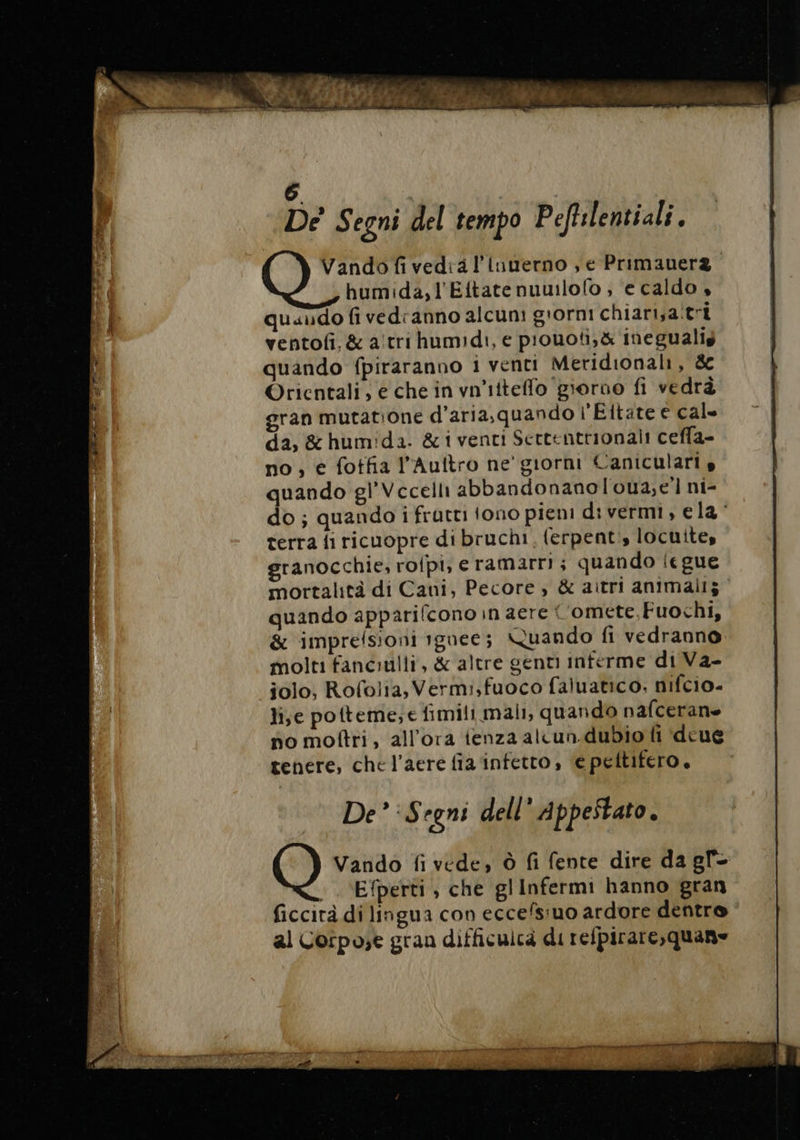 6
De' Segni del tempo Pestilentiali.
QVando si vedrà l'Inuerno, e Primauera
humida, l'Estate nuuiloso, e caldo,
quando si vedranno alcuni giorni chiari, altri
ventosi, & altri humidi, e piouosi, & inegualis
quando spiraranno i venti Meridionali, &
Orientali, e che in vn'istesso giorno si vedrà
gran mutatione d'aria, quando l'Estate è cal-
da, & humida. & i venti Settentrionali cessa-
no, e soffia l'Austro ne' giorni Caniculari,
quando gl'Vccelli abbandonano l'oua, e'l ni-
do; quando i frutti sono pieni di vermi, e la
terra si ricuopre di bruchi, serpenti, locuste,
granocchie, rospi, e ramarri; quando segue
mortalità di Cani, Pecore, & altri animali;
quando appariscono in aere Comete, Fuochi,
& impressioni ignee; Quando si vedranno
molti fanciulli, & altre genti inferme di Va-
iolo, Rosolia, Vermi, fuoco saluatico, niscio-
li, e posteme, e simili mali, quando nasceran-
no mostri, all'ora senza alcun dubio si deue
tenere, che l'aere sia infetto, e pestifero.
De' Segni dell' Appestato.
QVando si vede, ò si sente dire da gl'-
Esperti, che gl Infermi hanno gran
siccità di lingua con eccessiuo ardore dentro
al Corpo, e gran difficultà di respirare, quan-